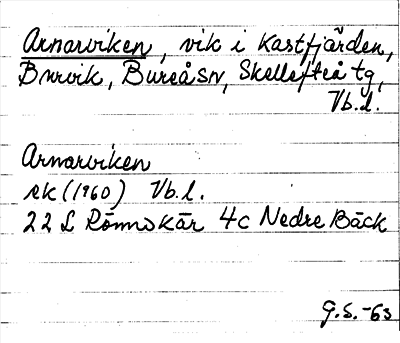 Arnarviken, vik i Kastfjärden,
Burvik, Bureå sn, Skellefteå tg,
Vb.l.
Arnarviken
rk (1960) Vb.l.
22 L Rönnskär 4c Nedre Bäck
G.S.-63